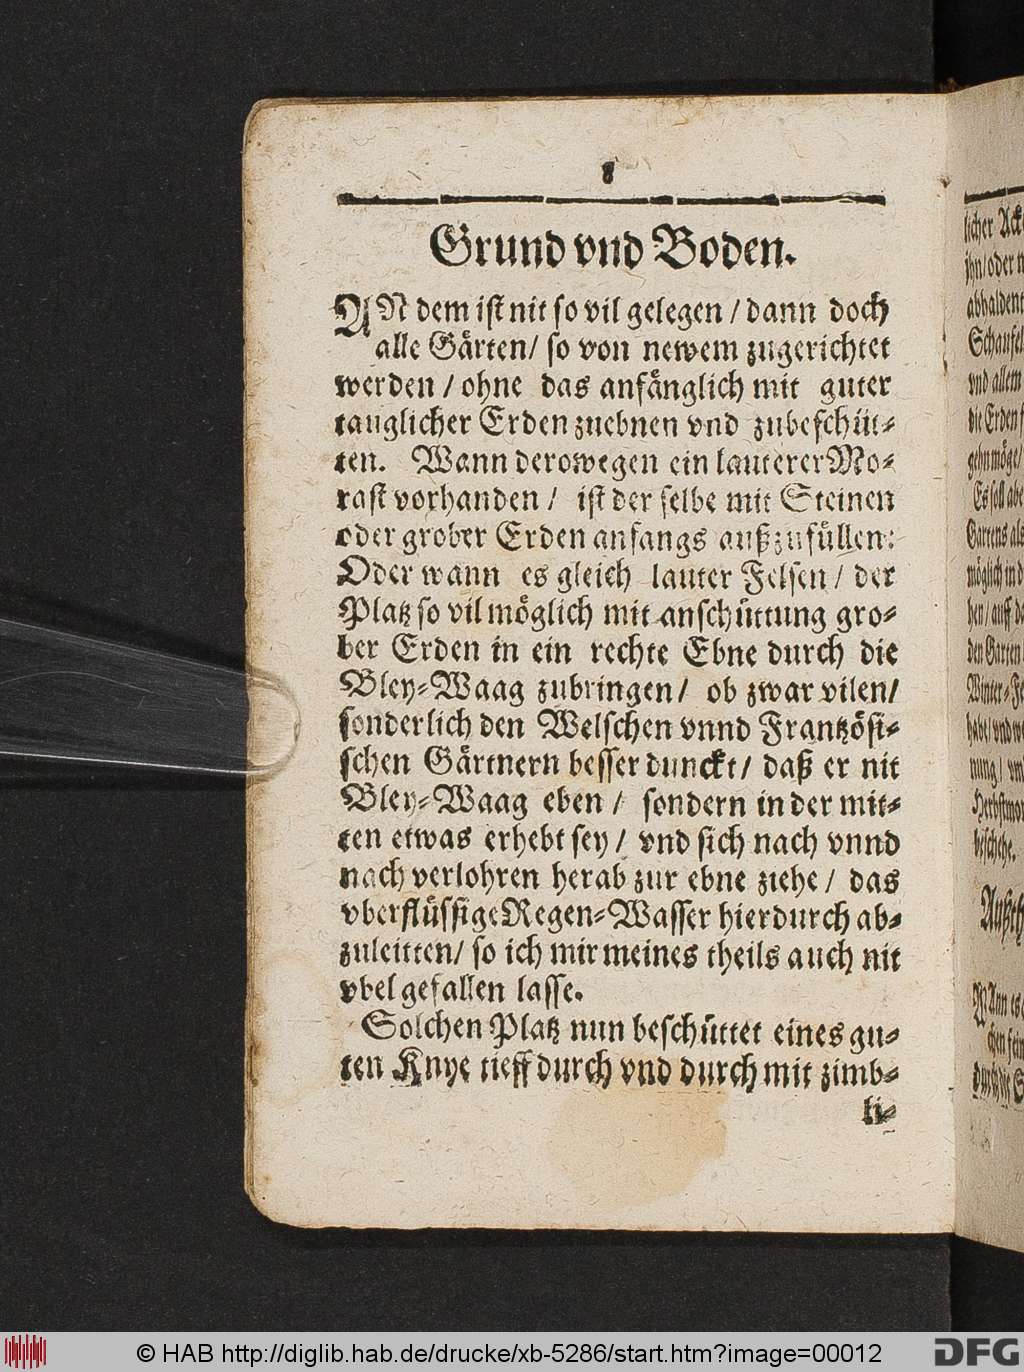 8
Grund vnd Boden.
AN dem ist nit so vil gelegen / dann doch
alle Gärten / so von newem zugerichtet
werden / ohne das anfänglich mit guter
tauglicher Erden zuebnen vnd zubeschüt-
ten. Wann derowegen ein lauterer Mo-
rast vorhanden / ist der selbe mit Steinen
oder grober Erden anfangs außzufüllen:
Oder wann es gleich lauter Felsen / der
Platz so vil möglich mit anschüttung gro-
ber Erden in ein rechte Ebne durch die
Bley-Waag zubringen / ob zwar vilen /
sonderlich den Welschen vnnd Frantzösi-
schen Gärtnern besser dunckt / daß er nit
Bley-Waag eben / sondern in der mit-
ten etwas erhebt sey / vnd sich nach vnnd
nach verlohren herab zur ebne ziehe / das
vberflüssige Regen-Wasser hierdurch ab-
zuleitten / so ich mir meines theils auch nit
vbel gefallen lasse.
Solchen Platz nun beschüttet eines gu-
ten Knye tieff durch vnd durch mit zimb-
li-
licher
jhn / oder
Schaufel
vnd allem
die Erden
gehn möge /
Es soll
Gartens als
möglich in
den Garten
© HAB http://diglib.hab.de/drucke/xb-5286/start.htm?image=00012
DFG